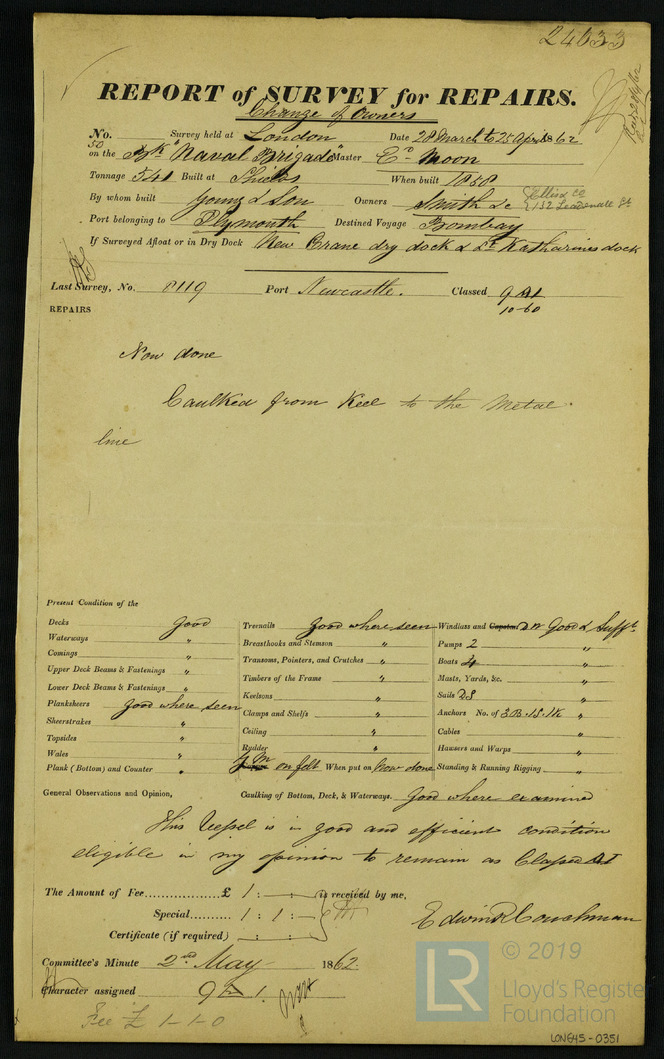 24633
REPORT of SURVEY for REPAIRS.
Change of Owners
No. Survey held at London Date 28 March to 25 April 1862
50
on the Bk "Naval Brigade" Master E. Moon
Tonnage 541 Built at Shields When built 1858
By whom built Young & Son Owners Smith &c
Ellis & Co
132 Leadenhall St
Port belonging to Plymouth Destined Voyage Bombay
If Surveyed Afloat or in Dry Dock New Crane dry dock & St Katharines dock
Last Survey, No. 8119 Port Newcastle. Classed 9 A1
10-60
REPAIRS
Now done
Caulked from Keel to the Metal
line
Present Condition of the
Decks good
Waterways "
Comings "
Upper Deck Beams & Fastenings "
Lower Deck Beams & Fastenings "
Planksheers good where seen
Sheerstrakes "
Topsides "
Wales "
Plank (Bottom) and Counter "
Treenails good where seen
Breasthooks and Stemson "
Transoms, Pointers, and Crutches "
Timbers of the Frame "
Keelsons "
Clamps and Shelfs "
Ceiling "
Rudder "
Y.M on felt When put on Now done
Windlass and Capstan good & Sufft
Pumps 2 "
Boats 4 "
Masts, Yards, &c. "
Sails 2S "
Anchors No. of 3B.1S.1K "
Cables "
Hawsers and Warps "
Standing & Running Rigging "
General Observations and Opinion, Caulking of Bottom, Deck, & Waterways. good where examined
This Vessel is in good and efficient condition
eligible in my opinion to remain as Classed A1
The Amount of Fee £ 1 : - : - is received by me,
Special 1 : 1 : -
Certificate (if required) - : - : -
Edwin R Couchman
Committee's Minute 2nd May 1862
Character assigned 9 A 1.
Fee £ 1-1-0
LR
© 2019
Lloyd's Register
Foundation
LON645-0351